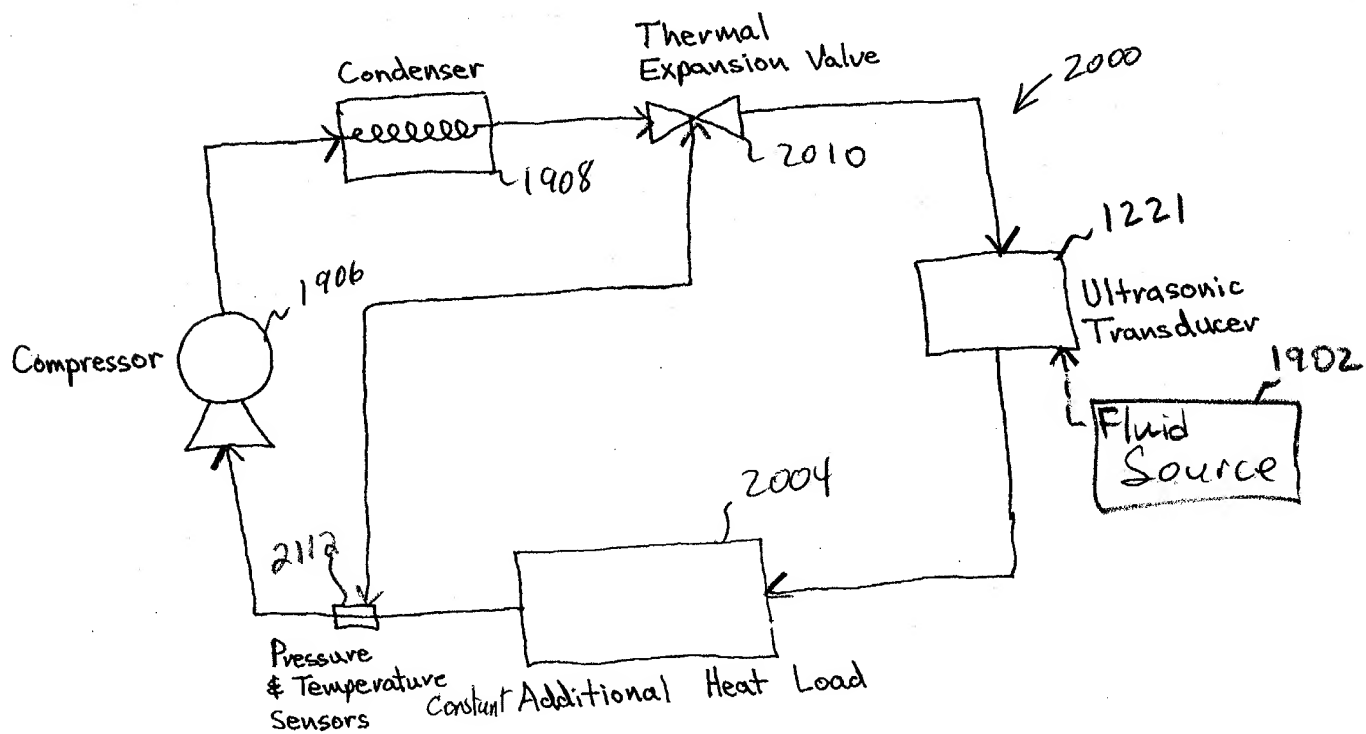 Thermal
Expansion Valve
2000
Condenser
2010
1908
1221
1906
Ultrasonic
Transducer
Compressor
1902
Fluid
Source
2004
2112
Pressure
& Temperature
Sensors
Constant Additional Heat Load